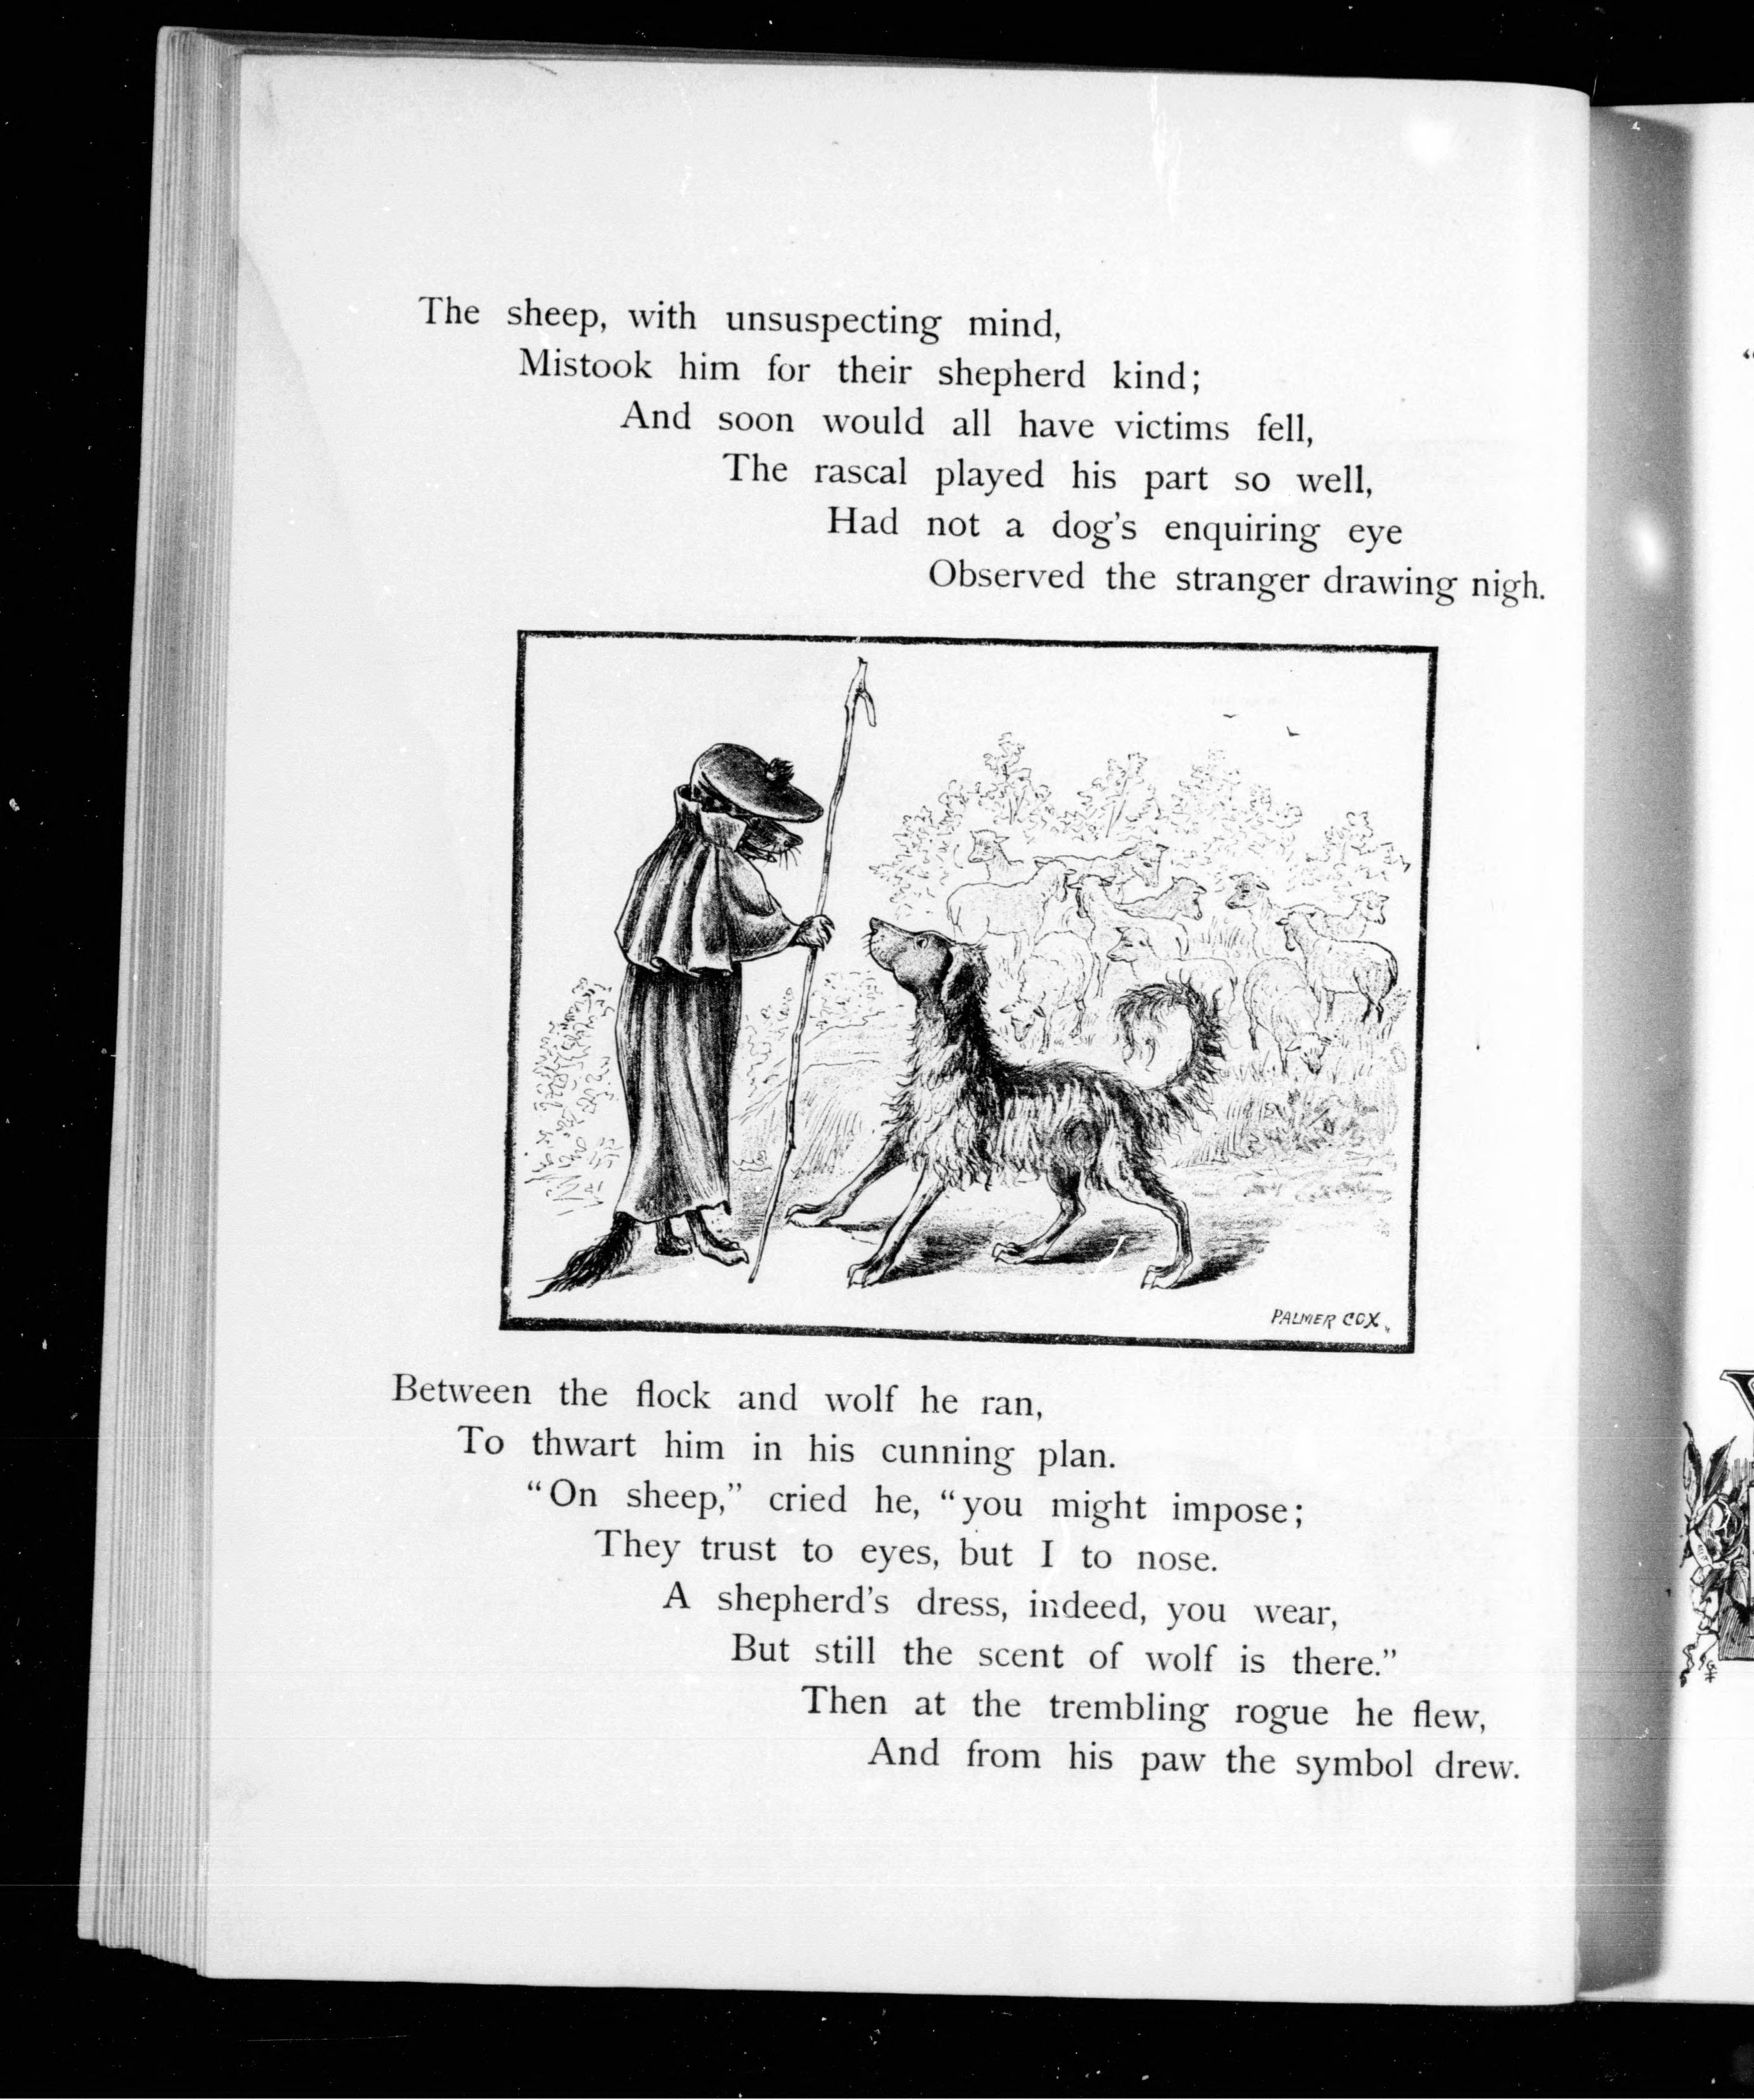 The sheep, with unsuspecting mind,
Mistook him for their shepherd kind;
And soon would all have victims fell,
The rascal played his part so well,
Had not a dog's enquiring eye
Observed the stranger drawing nigh.
PALMER COX.
Between the flock and wolf he ran,
To thwart him in his cunning plan.
"On sheep," cried he, "you might impose;
They trust to eyes, but I to nose.
A shepherd's dress, indeed, you wear,
But still the scent of wolf is there."
Then at the trembling rogue he flew,
And from his paw the symbol drew.